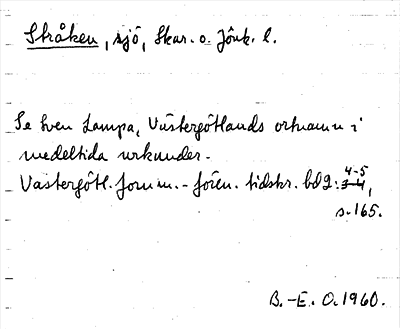 Stråken, sjö, Skar. o. Jönk. l.
Se Sven Lampa, Västergötlands ortnamn i
medeltida urkunder.
Västergötl. fornm.-fören. tidskr. bd 2: 4-5,
s. 165.
B.-E. O. 1960.